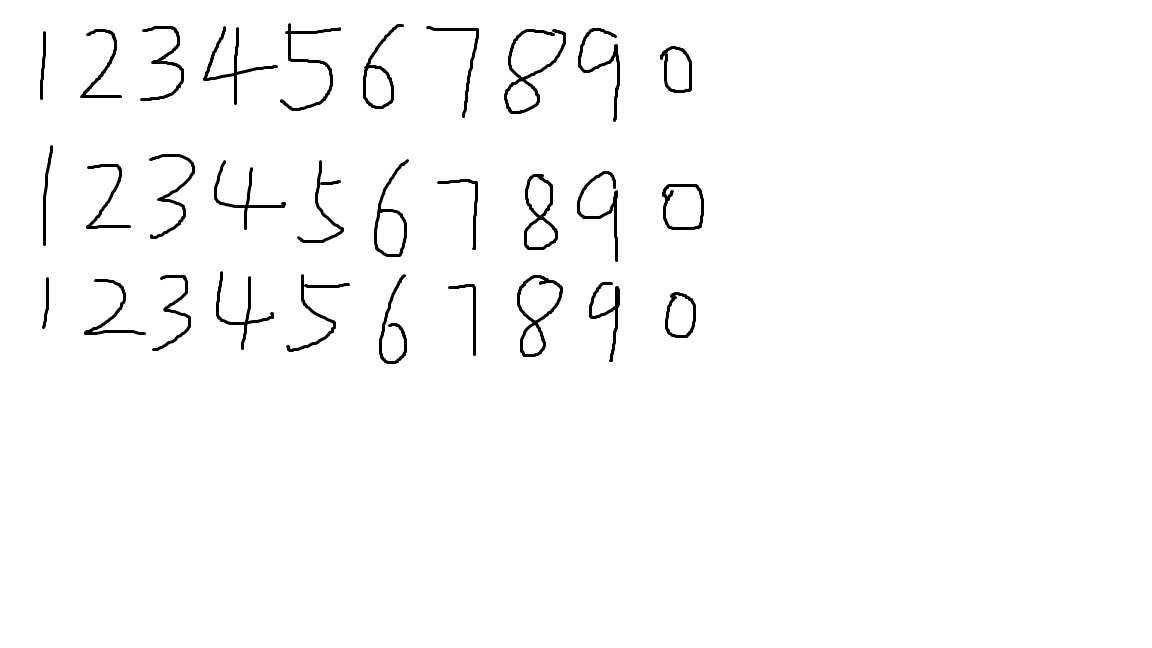 1 2 3 4 5 6 7 8 9 0
1 2 3 4 5 6 7 8 9 0
1 2 3 4 5 6 7 8 9 0